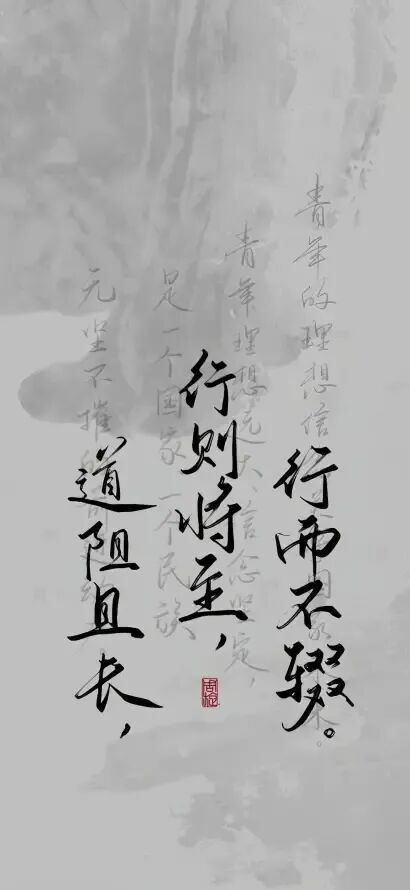 道阻且长，
行则将至，
行而不辍。
青年的理想信念关乎国家未来。
青年理想远大、信念坚定，
是一个国家、一个民族
无坚不摧的前进动